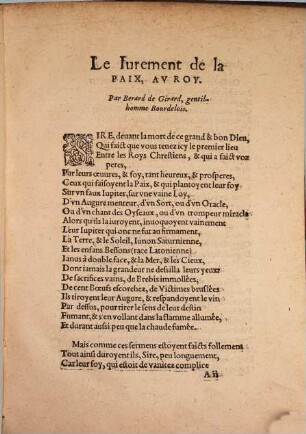 Le Iurement de la
PAIX, AV ROY.
Par Berard de Girard, gentil-
homme Bourdelois.
SIRE, deuant la mort de ce grand & bon Dieu,
Qui faict que vous tenez icy le premier lieu
Entre les Roys Chrestiens, & qui a faict voz
peres,
Par leurs œuures, & foy, tant heureux, & prosperes,
Ceux qui faisoyent la Paix, & qui plantoyent leur foy
Sur vn faux Iupiter, sur vne vaine Loy,
D'vn Augure menteur, d'vn Sort, ou d'vn Oracle,
Ou d'vn chant des Oyseaux, ou d'vn trompeur miracle
Alors qu'ils la iuroyent, inuoquoyent vainement
Leur Iupiter qui onc ne fut au firmament,
La Terre, & le Soleil, Iunon Saturnienne,
Et les enfans Bessons (race Latonienne)
Ianus à double face, & la Mer, & les Cieux,
Dont iamais la grandeur ne desilla leurs yeux:
De sacrifices vains, de Brebis immollées,
De cent Bœufs escorchez, de Victimes bruslées
Ils tiroyent leur Augure, & respandoyent le vin
Par dessus, pour tirer le sens de leur destin
Fumant, & s'en vollant dans la flamme allumée,
Et durant aussi peu que la chaude fumée.
Mais comme ces sermens estoyent faicts follement
Tout ainsi duroyent ils, Sire, peu longuement,
Car leur foy, qui estoit de vanitez complice
A ii